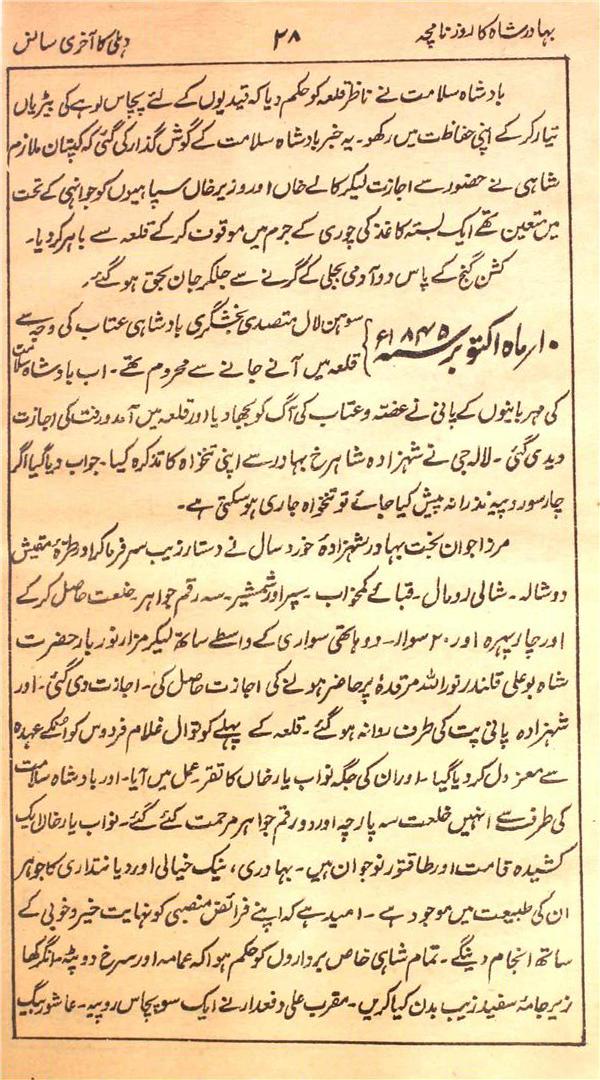 بہادر شاہ کا روزنامچہ ۲۸ دہلی کا آخری سانس
بادشاہ سلامت نے ناظر قلعہ کو حکم دیا کہ قیدیوں کے لئے پچاس لوہے کی بیڑیاں
تیار کر کے اپنی حفاظت میں رکھو۔ یہ خبر بادشاہ سلامت کے گوش گذار کی گئی کہ کپتان ملازم
شاہی نے حضور سے اجازت لیکر کالے خاں اور وزیر خاں سپاہیوں کو جو انہی کے تحت
میں متعین تھے ایک لستہ کاغذ کی چوری کے جرم میں موقوف کر کے قلعہ سے باہر کر دیا۔
کشن گنج کے پاس دو آدمی بجلی کے گرنے سے جلکر جان بحق ہو گئے۔
۱۰ ماہ اکتوبر سنہ ۱۸۴۵ء } سوہن لال متصدی بخشگری بادشاہی عتاب کی وجہ سے
قلعہ میں آنے جانے سے محروم تھے۔ اب بادشاہ سلامت
کی مہربانیوں کے پانی نے غصہ و عتاب کی آگ کو بجھا دیا اور قلعہ میں آمد و رفت کی اجازت
دیدی گئی۔ لالہ جی نے شہزادہ شاہرخ بہادر سے اپنی تنخواہ کا تذکرہ کیا۔ جواب دیا گیا اگر
چار سو روپیہ نذرانہ پیش کیا جائے تو تنخواہ جاری ہو سکتی ہے۔
مرزا جواں بخت بہادر شہزادۂ خورد سال نے دستار زیب سر فرما کر اور طرۂ مقیش
دو شالہ۔ شالی رومال۔ قبائے کمخواب۔ سپر اور شمشیر۔ سہ رقم جواہر خلعت حاصل کر کے
اور چار پہرہ اور ۲۰ سوار۔ دو ہاتھی سواری کے واسطے ساتھ لیکر مزار نور بار حضرت
شاہ بو علی قلندر نور اللہ مرقدہٗ پر حاضر ہونے کی اجازت حاصل کی۔ اجازت دی گئی۔ اور
شہزادہ پانی پت کی طرف روانہ ہو گئے۔ قلعہ کے پہلے کوتوال غلام فردوس کو انکے عہدہ
سے معزول کر دیا گیا۔ اور ان کی جگہ نواب یار خاں کا تقرر عمل میں آیا۔ اور بادشاہ سلامت
کی طرف سے انہیں خلعت سہ پارچہ اور دو رقم جواہر مرحمت کئے گئے۔ نواب یار خاں ایک
کشیدہ قامت اور طاقتور نوجوان ہیں۔ بہادری، نیک خیالی اور دیانتداری کا جوہر
ان کی طبیعت میں موجود ہے۔ امید ہے کہ اپنے فرائض منصبی کو نہایت خیر و خوبی کے
ساتھ انجام دینگے۔ تمام شاہی خاص برداروں کو حکم ہوا کہ عمامہ اور سرخ دوپٹہ۔ انگرکھا
زیر جامہ سفید زیب بدن کیا کریں۔ مقرب علی دفعدار نے ایک سو پچاس روپیہ۔ عاشور بیگ